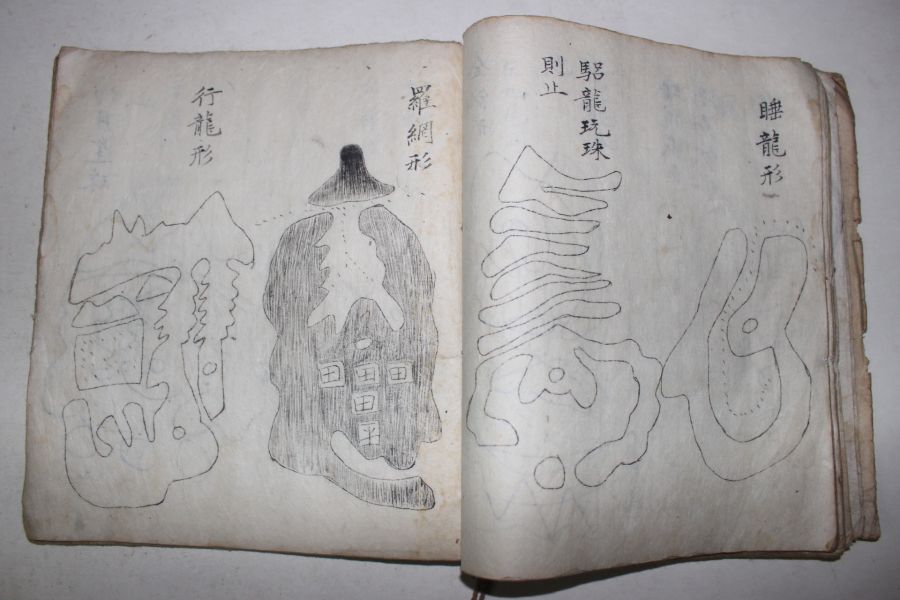 睡龍形
驪龍玩珠
則止
羅網形
行龍形
田田田
田
平